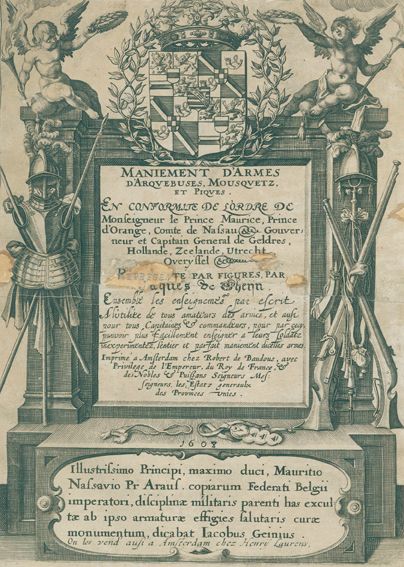 MANIEMENT D'ARMES
D'ARQVEBUSES, MOUSQVETZ.
ET PIQVES.
EN CONFORMITE DE L'ORDRE DE
Monseigneur le Prince Maurice, Prince
d'Orange, Comte de Nassau &c. Gouver-
neur et Capitain General de Geldres,
Hollande, Zeelande, Utrecht,
Overyssel &c.
TE PAR FIGURES, PAR
aques de Gheyn
Ensemble les enseignemēs par escrit
A l'utilite de tous amateurs des armes, et ausi
pour tous Capitaines & commandeurs, pour par cecy
pouvoir plus facillement enseigner a leurs soldatz
inexperimentez l'entier et parfait maniement dicelles armes
Imprimè a Amsterdam chez Robert de Baudous, avec
Privilege de l'Empereur, du Roy de France, &
des Nobles & Puissans Seigneurs, Mes
seigneurs les Estatz generaulx
des Provinces Unies.
1608
Illustrissimo Principi, maximo duci, Mauritio
Nassavio Pr Araus. copiarum Federati Belgii
imperatori, disciplinæ militaris parenti has excul
tæ ab ipso armaturæ effigies salutaris curæ
monumentum, dicabat Iacobus Geinius.
On les vend ausi a Amsterdam chez Henri Laurens.